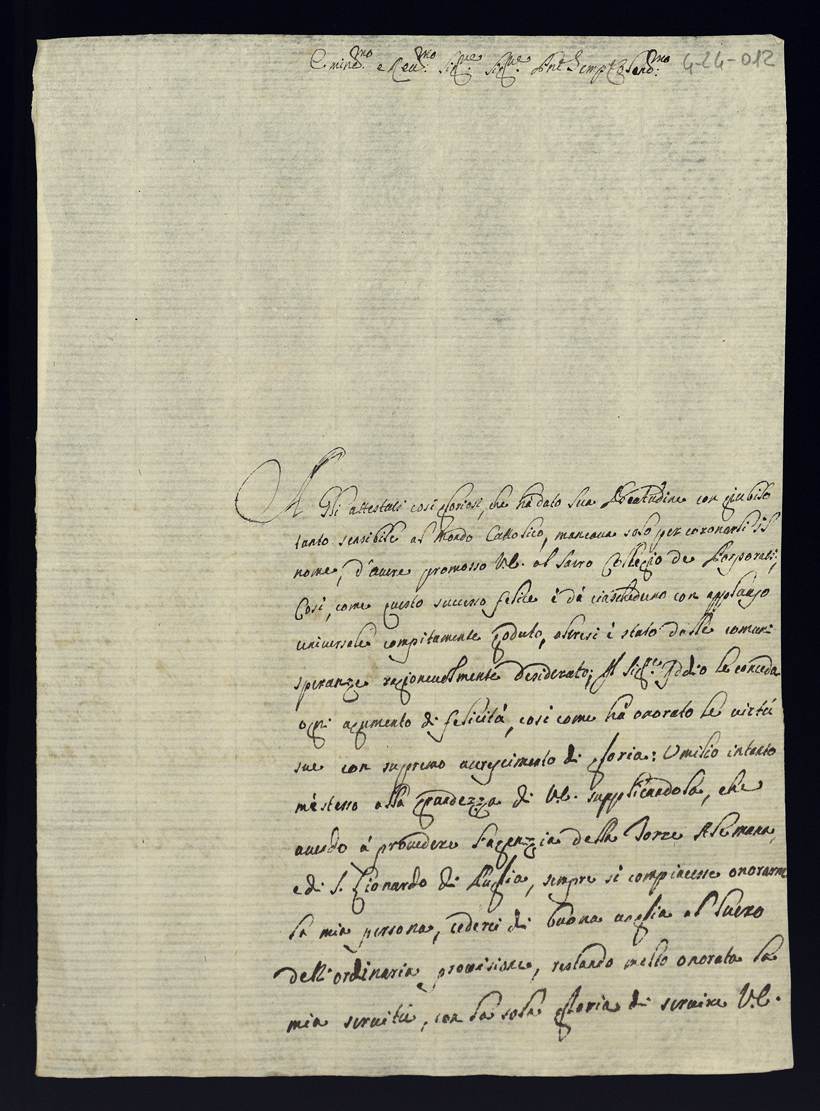 Emin.mo e Reu.mo Sig.re Sig.re
4-24-012
A Gli attestati così gloriosi, che hà dato Sua Beatudine con giubilo
tanto sensibile al Mondo Cattolico, mancaua solo per coronarli il
nome, d'auere promosso V.E. al Sacro Collegio de Porporati,
Così, come questo successo felice è dà ciascheduno con applauso
uniuersale compitamente goduto, altresì è stato dalle comuni
speranze ragioneuolmente desiderato; Il Sig.re Iddio le conceda
ogni augumento di felicità, così come hà onorato le uirtù
sue con supremo accrescimento di gloria: Umilio intanto
mè stesso alla grandezza di V.E. supplicandola, che
auendo à prouedere l'agenzia della Torre Alemana,
e di S. Lionardo di Puglia, sempre si compiacesse onorarne
la mia persona, cederei di buona uoglia al lucro
dell'ordinaria prouisione, restando molto onorata la
mia seruitù, con la sola gloria di seruire V.E.